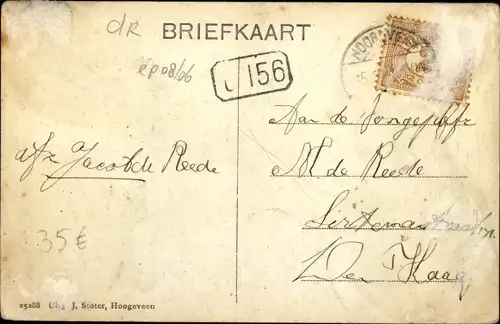 dR
BRIEFKAART
epo8/66
J 156
Aan de Jongejuffr
afz Jacob de Reede
M de Reede
35€
Den Haag
25288 Uitg J. Stoter, Hoogeveen